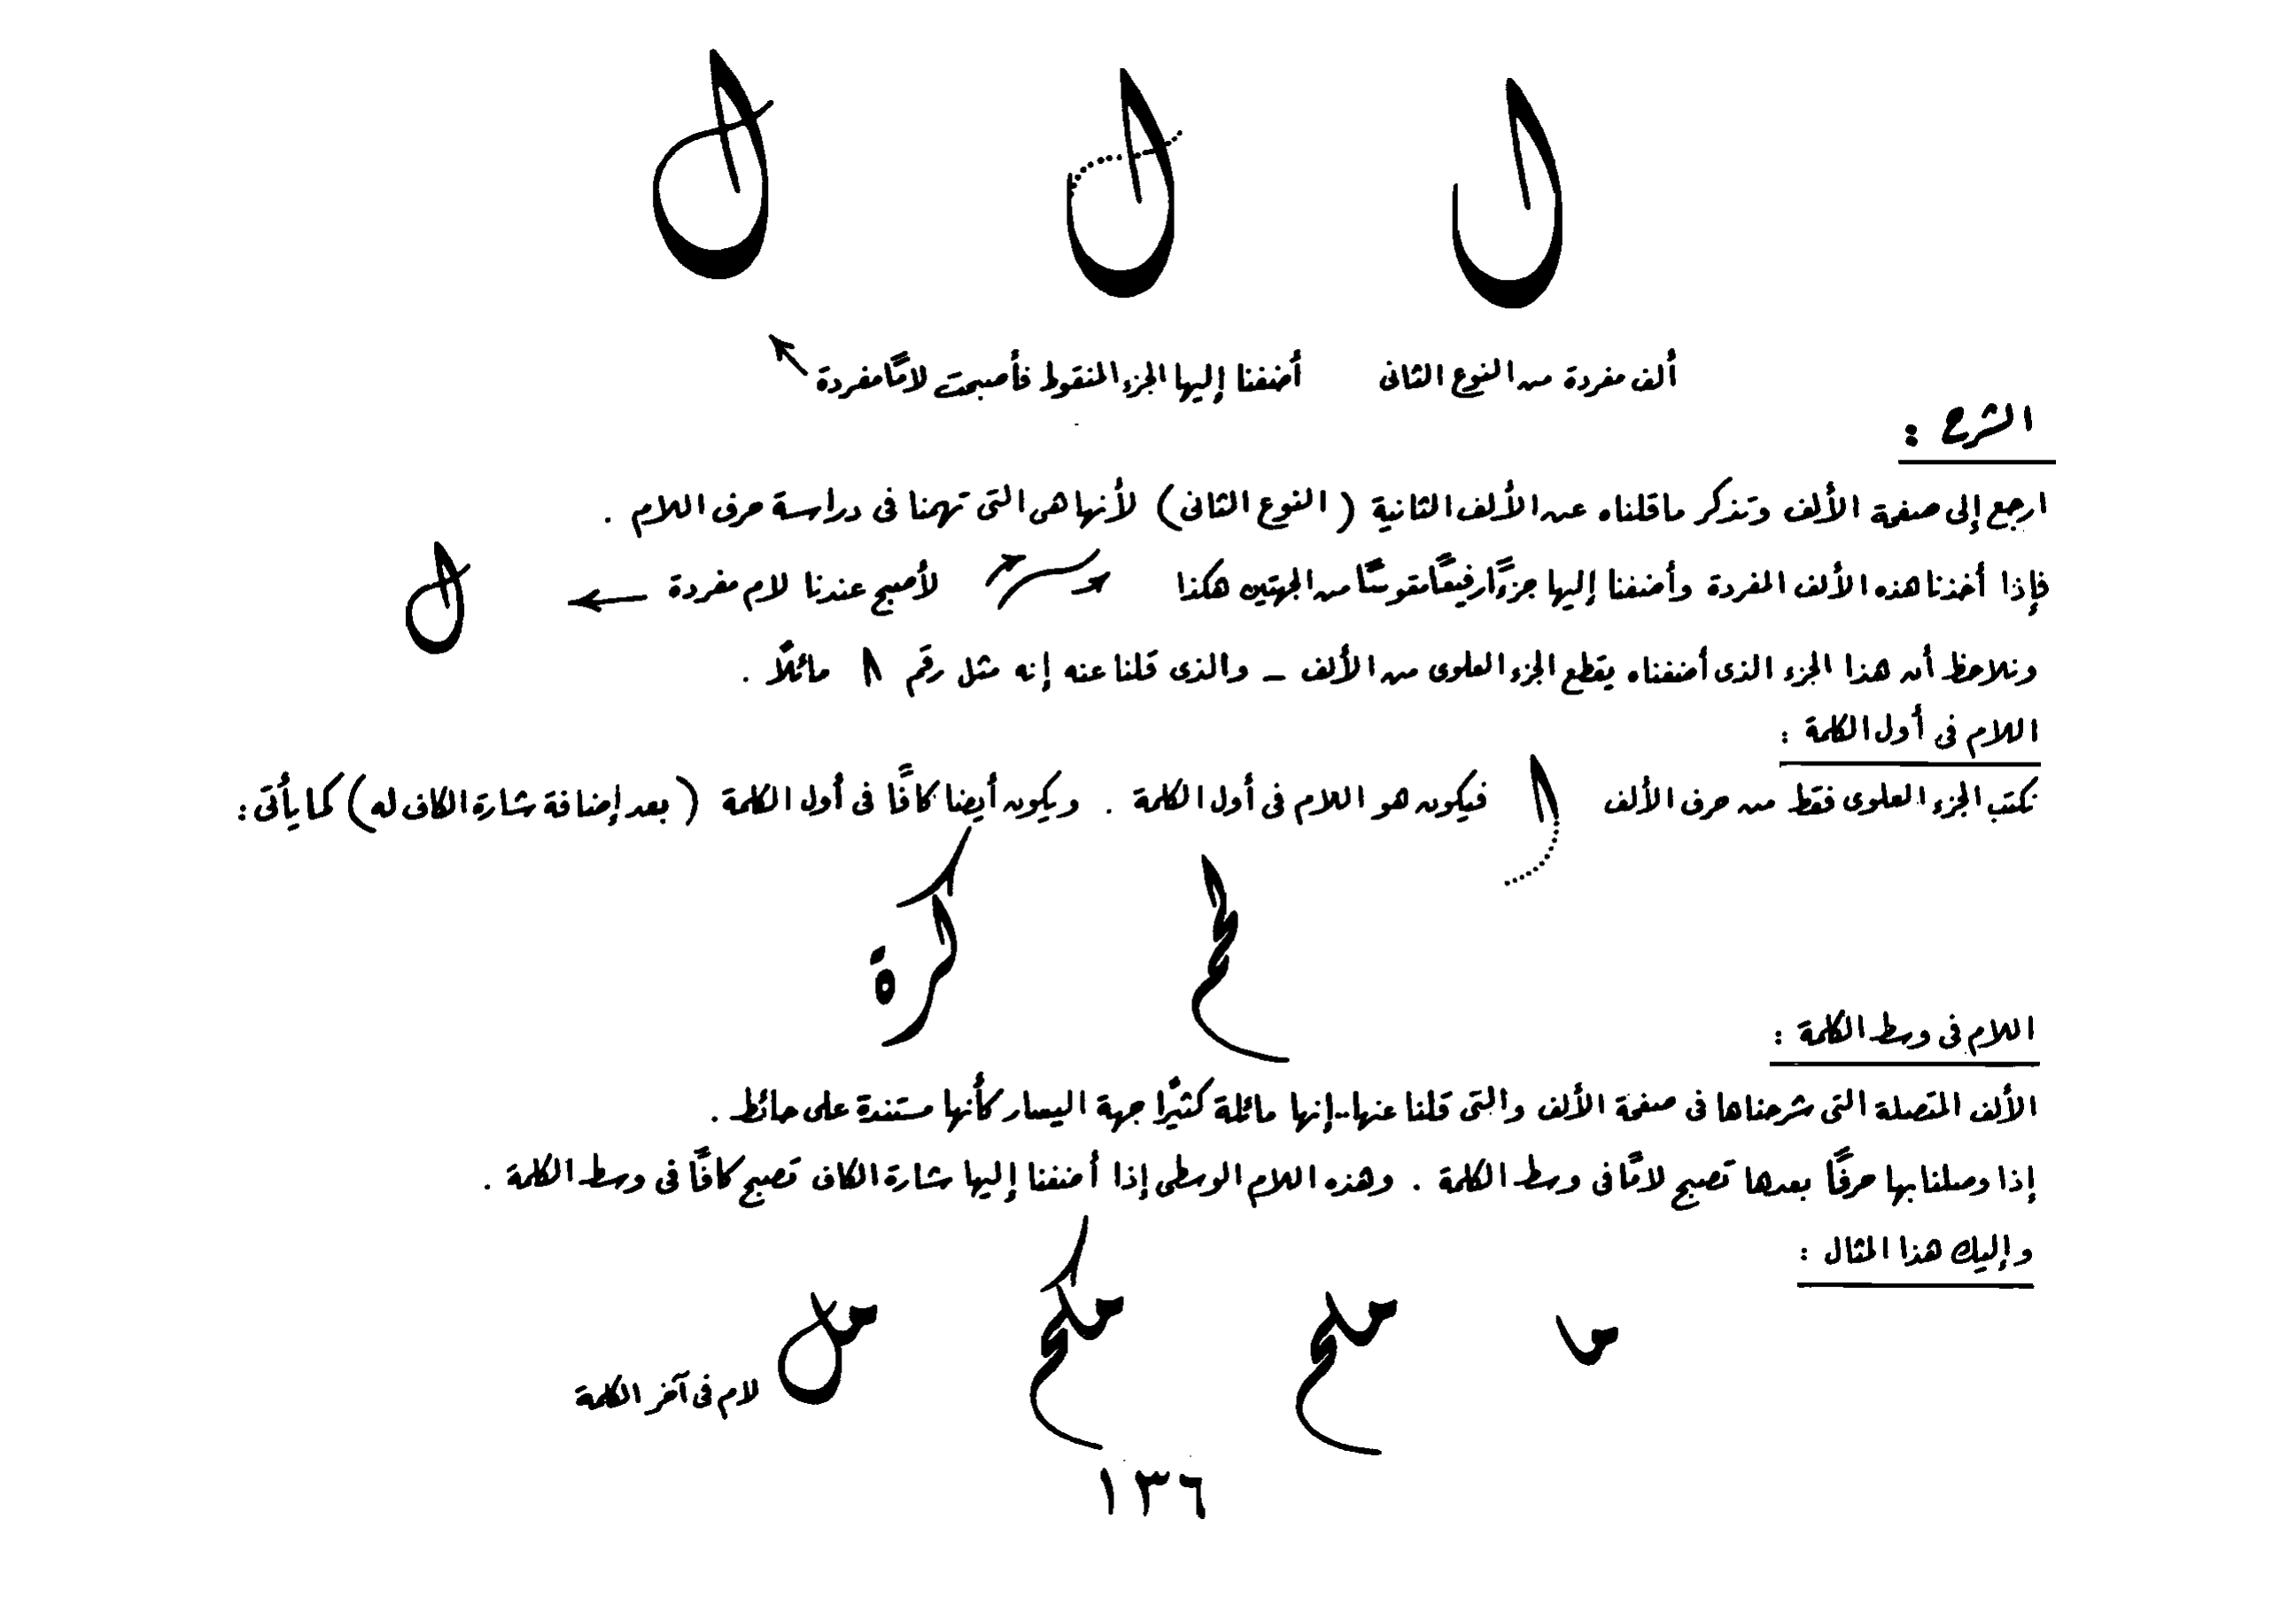 ألف مفردة من النوع الثانى أضفنا إليها الجزء المنقوط فأصبحت لامًا مفردة
الشرح :
ارجع إلى صفحة الألف وتذكر ما قلناه عن الألف الثانية ( النوع الثانى ) لأنها هى التى تهمنا فى دراسة حرف اللام .
فإذا أخذنا هذه الألف المفردة وأضفنا إليها جزءًا رفيعًا مقوسًا من الجهتين هكذا لأصبح عندنا لام مفردة ل
ونلاحظ أن هذا الجزء الذى أضفناه يقطع الجزء العلوى من الألف - والذى قلنا عنه إنه مثل رقم ٨ مائلًا .
اللام فى أول الكلمة :
نكتب الجزء العلوى فقط من حرف الألف فيكون هو اللام فى أول الكلمة . ويكون أيضا كافًا فى أول الكلمة ( بعد إضافة شارة الكاف له ) كما يأتى :
لحم كرة
اللام فى وسط الكلمة :
الألف المتصلة التى شرحناها فى صفحة الألف والتى قلنا عنها.. إنها مائلة كثيرًا جهة اليسار كأنها مستندة على حائط .
إذا وصلنا بها حرفًا بعدها تصبح لامًا فى وسط الكلمة . وهذه اللام الوسطى إذا أضفنا إليها شارة الكاف تصبح كافًا فى وسط الكلمة .
وإليك هذا المثال :
ما ملحم مكحم مل لام فى آخر الكلمة
١٣٦